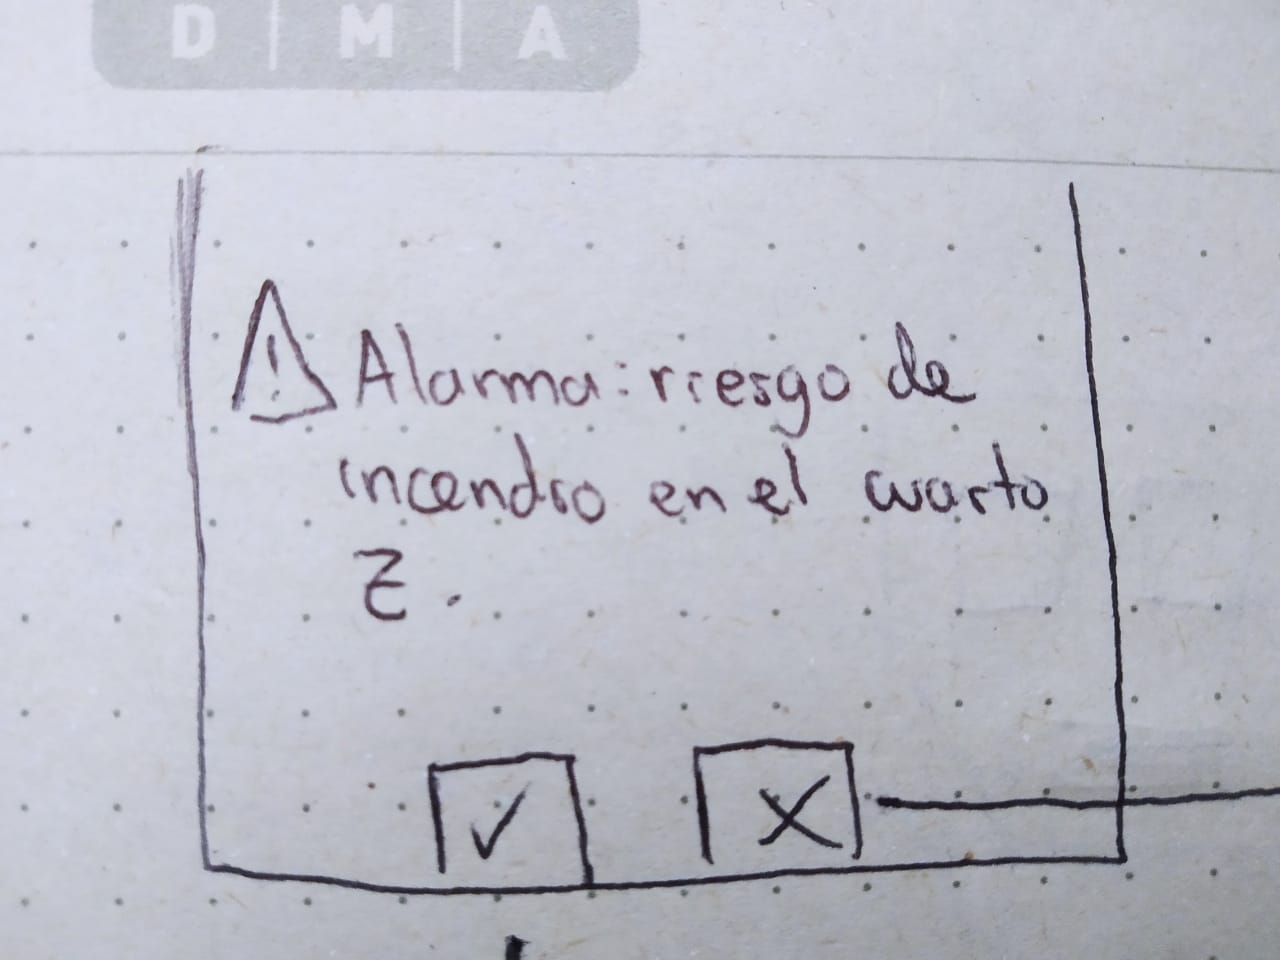 D | M | A
Alarma: riesgo de
incendio en el cuarto
Z.